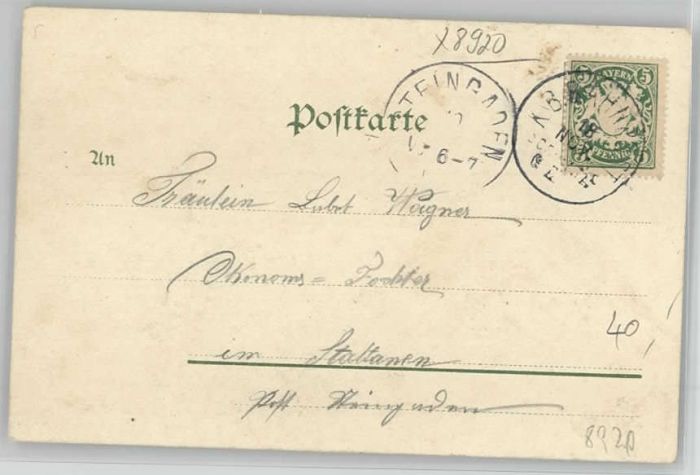 X8920
BAYERN
5 5
PFENNIG
STEINGADEN
6-7
18
NOV
Postkarte
An
Fräulein Wagner
Ökonoms= Tochter
in
Post Steingaden
40,
8920